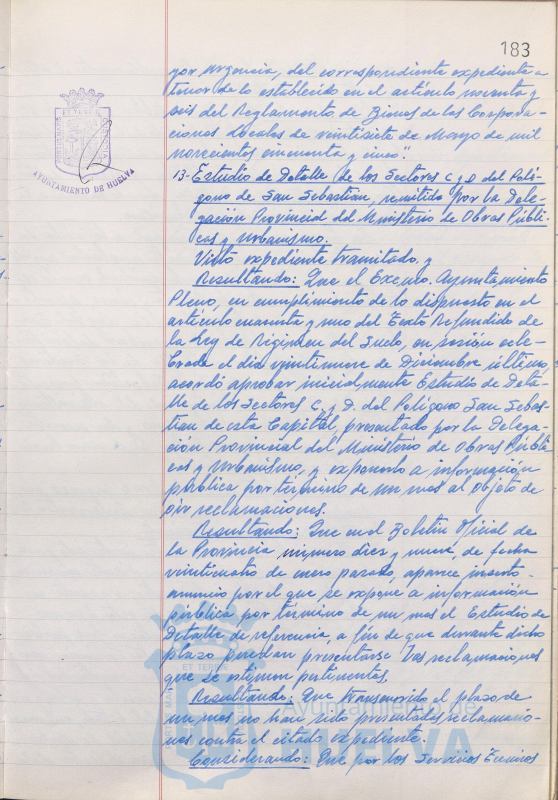 183
por urgencia, del correspondiente expediente a
tenor de lo establecido en el artículo noventa y
seis del Reglamento de Bienes de las Corpora-
ciones Locales de veintisiete de Mayo de mil
novecientos cincuenta y cinco".
13- Estudio de Detalle de los Sectores C y D del Polí-
gono de San Sebastián, remitido por la Dele-
gación Provincial del Ministerio de Obras Públi-
cas y Urbanismo.
Visto expediente tramitado, y
Resultando: Que el Excmo. Ayuntamiento
Pleno, en cumplimiento de lo dispuesto en el
artículo cuarenta y uno del Texto Refundido de
la Ley de Régimen del Suelo, en sesión cele-
brada el día veintinueve de Diciembre último,
acordó aprobar inicialmente Estudio de Deta-
lle de los Sectores C y D. del Polígono San Sebas-
tian de esta Capital, presentado por la Delega-
ción Provincial del Ministerio de Obras Públi-
cas y Urbanismo, y exponerlo a información
pública por término de un mes al objeto de
oir reclamaciones.
Resultando: Que en el Boletín Oficial de
la Provincia número diez y nueve, de fecha
veinticuatro de enero pasado, aparece inserto
anuncio por el que se expone a información
pública por término de un mes el Estudio de
Detalle de referencia, a fin de que durante dicho
plazo puedan presentarse las reclamaciones
que se estimen pertinentes.
Resultando: Que transcurrido el plazo de
un mes no han sido presentadas reclamacio-
nes contra el citado expediente.
Considerando: Que por los Servicios Técnicos
AYUNTAMIENTO DE HUELVA
ET TERRE
Ayuntamiento de
HUELVA